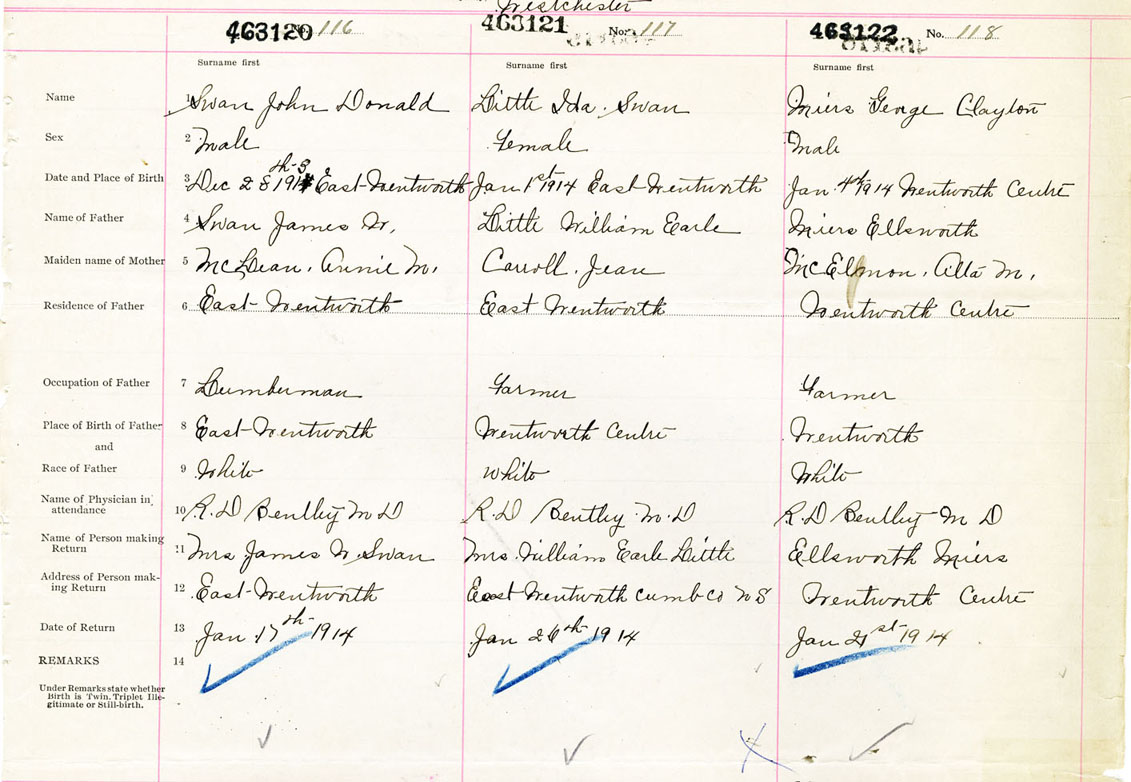 Westchester
463120 No. 116 463121 No. 117 463122 No. 118
Surname first Surname first Surname first
Name 1 Swan John Donald Little Ida. Swan Miers George Clayton
Sex 2 Male Female Male
Date and Place of Birth 3 Dec 28th-3 191 East-Wentworth Jan 1st 1914 East-Wentworth Jan 4th 1914 Wentworth Centre
Name of Father 4 Swan James W. Little William Earle Miers Ellsworth
Maiden name of Mother 5 McLean. Annie M. Carroll. Jean McElmon. Alta M.
Residence of Father 6 East-Wentworth East Wentworth Wentworth Centre
Occupation of Father 7 Lumberman Farmer Farmer
Place of Birth of Father 8 East-Wentworth Wentworth Centre Wentworth
and
Race of Father 9 White White White
Name of Physician in attendance 10 R.D Bentley M D R.D Bentley. M. D R.D Bentley M D
Name of Person making Return 11 Mrs James W. Swan Mrs. William Earle Little Ellsworth Miers
Address of Person mak-ing Return 12 East-Wentworth East Wentworth Cumb Co N S Wentworth Centre
Date of Return 13 Jan 17th-1914 Jan 26th 1914 Jan 21st 1914
REMARKS 14
Under Remarks state whether
Birth is Twin. Triplet Ille-
gitimate or Still-birth.